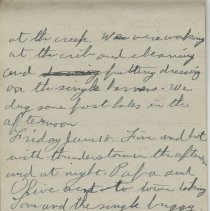 at the creek. We were working
at the oil and cleaning
and putting dressing
on the single harness. We
dug some post holes in the
afternoon
Friday June 18. Fine and hot
with thunderstorm in the afternoon
and at night. Papa and
Olive went to town taking
Tom and the single buggy